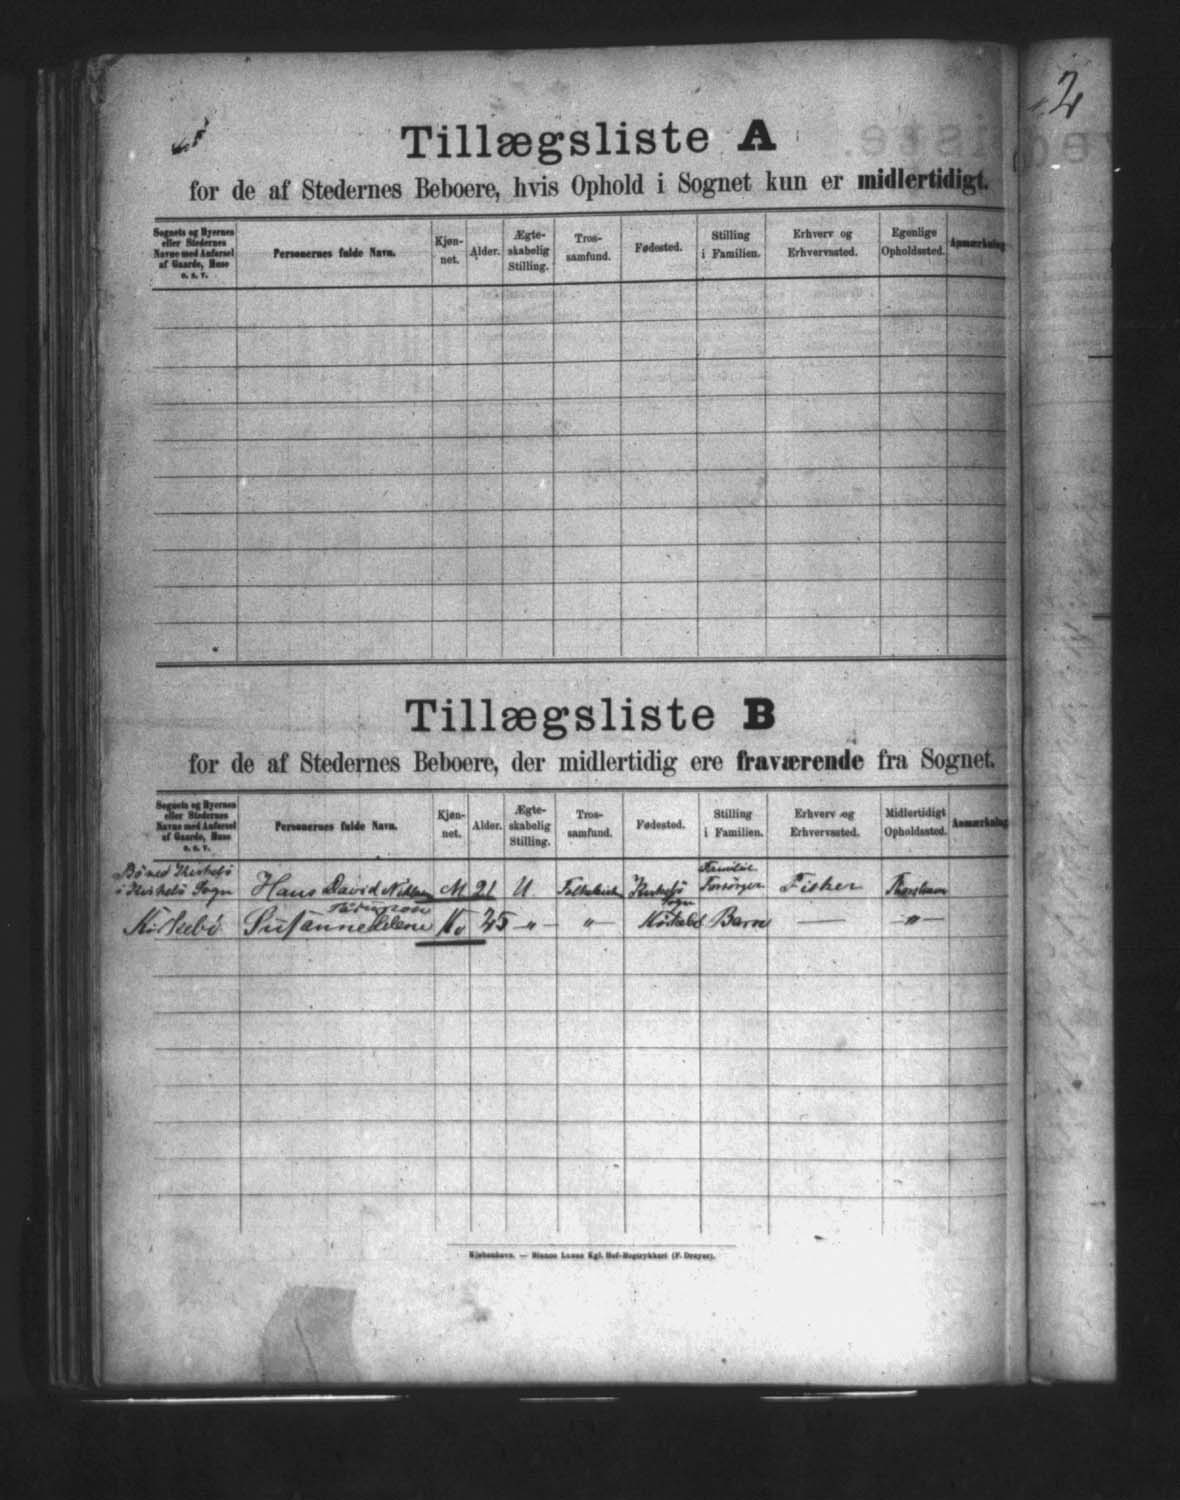 2
Tillægsliste A
for de af Stedernes Beboere, hvis Ophold i Sognet kun er midlertidigt.
Sognets og Byernes eller Stedernes Navne med Anførsel af Gaarde, Huse o. s. v.
Personernes fulde Navn.
Kjøn-
net.
Alder.
Ægte-
skabelig
Stilling.
Tros-
samfund.
Fødested.
Stilling
i Familien.
Erhverv og
Erhvervssted.
Egenlige
Opholdssted.
Anmærkning
Tillægsliste B
for de af Stedernes Beboere, der midlertidig ere fraværende fra Sognet.
Sognets og Byernes
eller Stedernes
Navne med Anførsel
af Gaarde, Huse
o. s. v.
Personernes fulde Navn.
Kjøn-
net.
Alder.
Ægte-
skabelig
Stilling.
Tros-
samfund.
Fødested.
Stilling
i Familien.
Erhverv og
Erhvervssted.
Midlertidigt
Opholdssted.
Anmærkning
i Sogn Hans David M 21 U Familie Forsørger Fisker
Kirkebø Susanne Helene K. 25 — „ — — „ — Barn — — „ —
Kjøbenhavn. — Bianco Lunos Kgl. Hof-Bogtrykkeri (F. Dreyer).